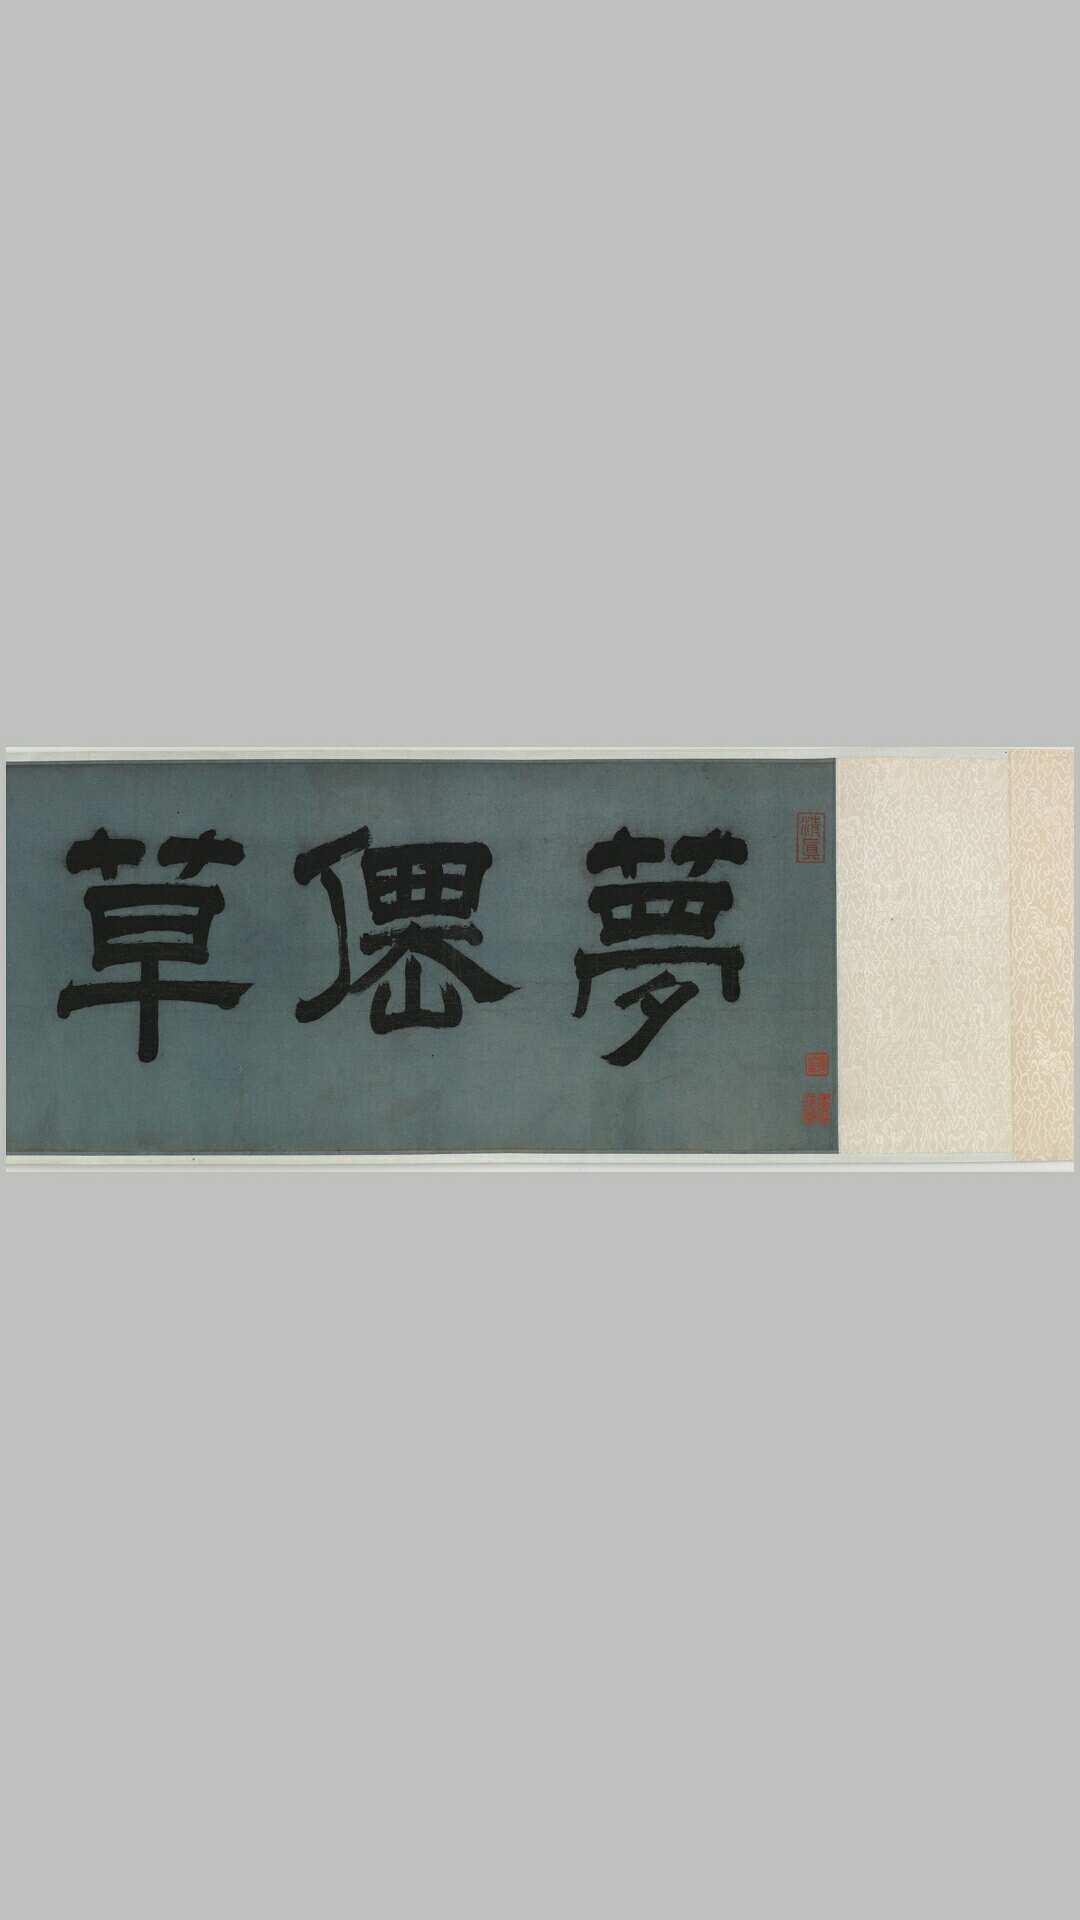 夢僊草